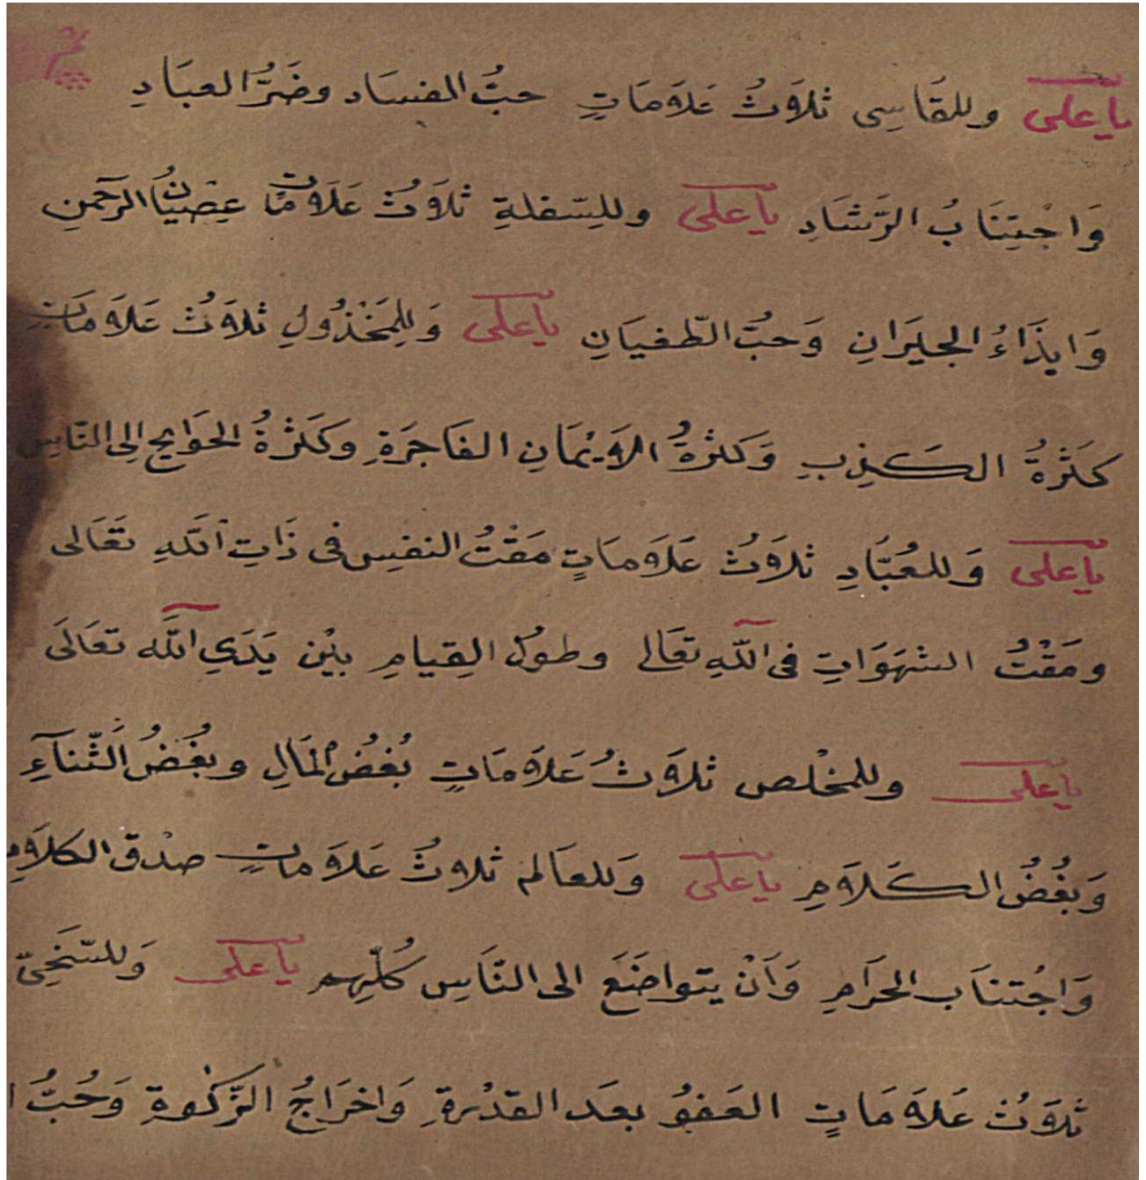 يا على وللقَاسِى ثلَاثُ عَلَامَاتٍ حبُّ الفسَاد وضَرُّ العبَادِ
وَاجْتِنَابُ الرَّشَادِ يا على وللسّفلةِ ثلَاثُ عَلَامَاتٍ عِصْيَانُ الرّحمنِ
وَايذَاءُ الجيرَانِ وَحبُّ الطّغيَانِ يا على وَلِلمَخْذُولِ ثلَاثُ عَلَامَاتٍ
كَثْرَةُ الكَذِبِ وَكثرَةُ الاَيْمَانِ الفَاجرَةِ وكَثْرَةُ الحَوَايج الى النَّاسِ
يا على وَللعُبَّادِ ثلَاثُ عَلَامَاتٍ مَقْتُ النفسِ فى ذَاتِ اللهِ تَعَالى
ومَقْتُ الشهَوَاتِ فى اللهِ تعَالى وطولُ القِيامِ بيْن يَدَىِ اللهِ تعَالَى
يا على وللمخْلص ثلَاثُ عَلَامَاتٍ بُغضُ المَالِ وبغُضُ الثّنَآءِ
وَبغُضُ الكَلَامِ يا على وَللعَالم ثلاثُ عَلَامَاتٍ صدْق الكلَامِ
وَاجْتنَاب الحرَامِ وَاَنْ يتواضَعَ الى النَّاسِ كُلّهِم يا على وَللسّخِىّ
ثلَاثُ عَلَامَاتٍ العَفوُ بعدَ القدْرةِ وَاخرَاجُ الزَّكٰوةِ وَحُبُّ